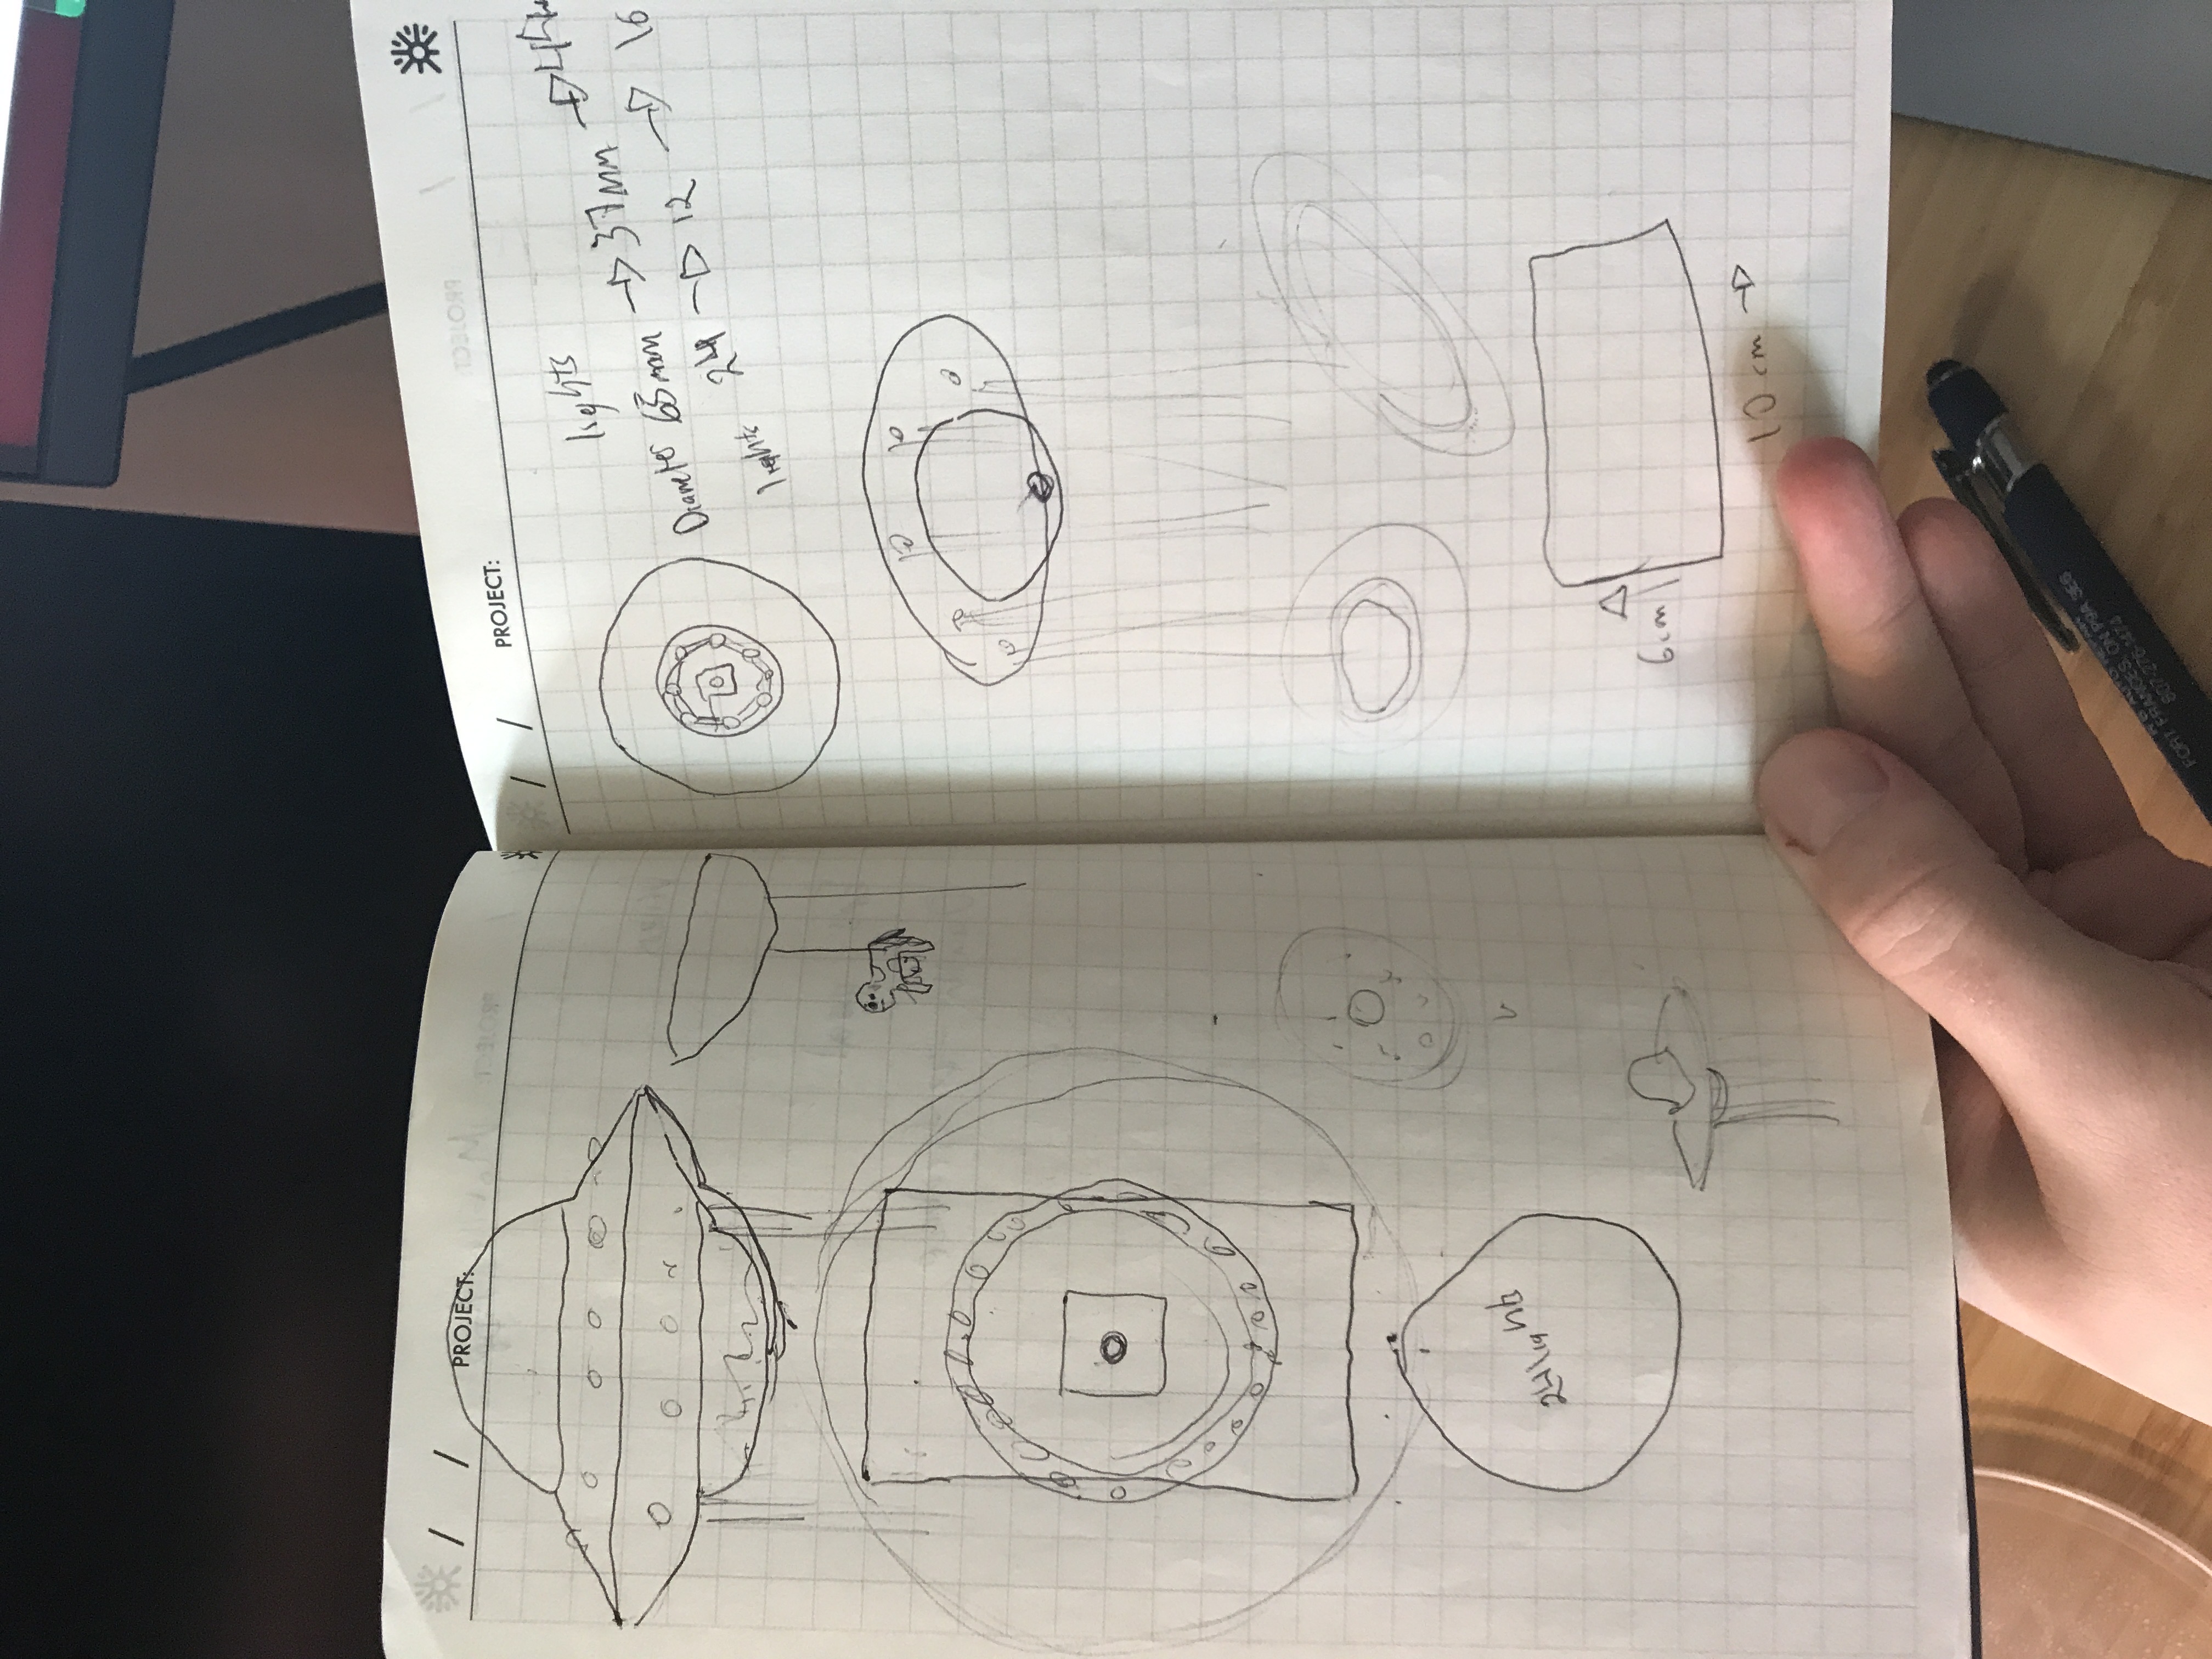 / / PROJECT:
24 lights
/ / PROJECT:
lights
Diameter 65mm → 37mm → 44
lights 24 → 12 → 16
6cm
10 cm →
FORT FRANCES, ON P9A 3E6
807-276-1474